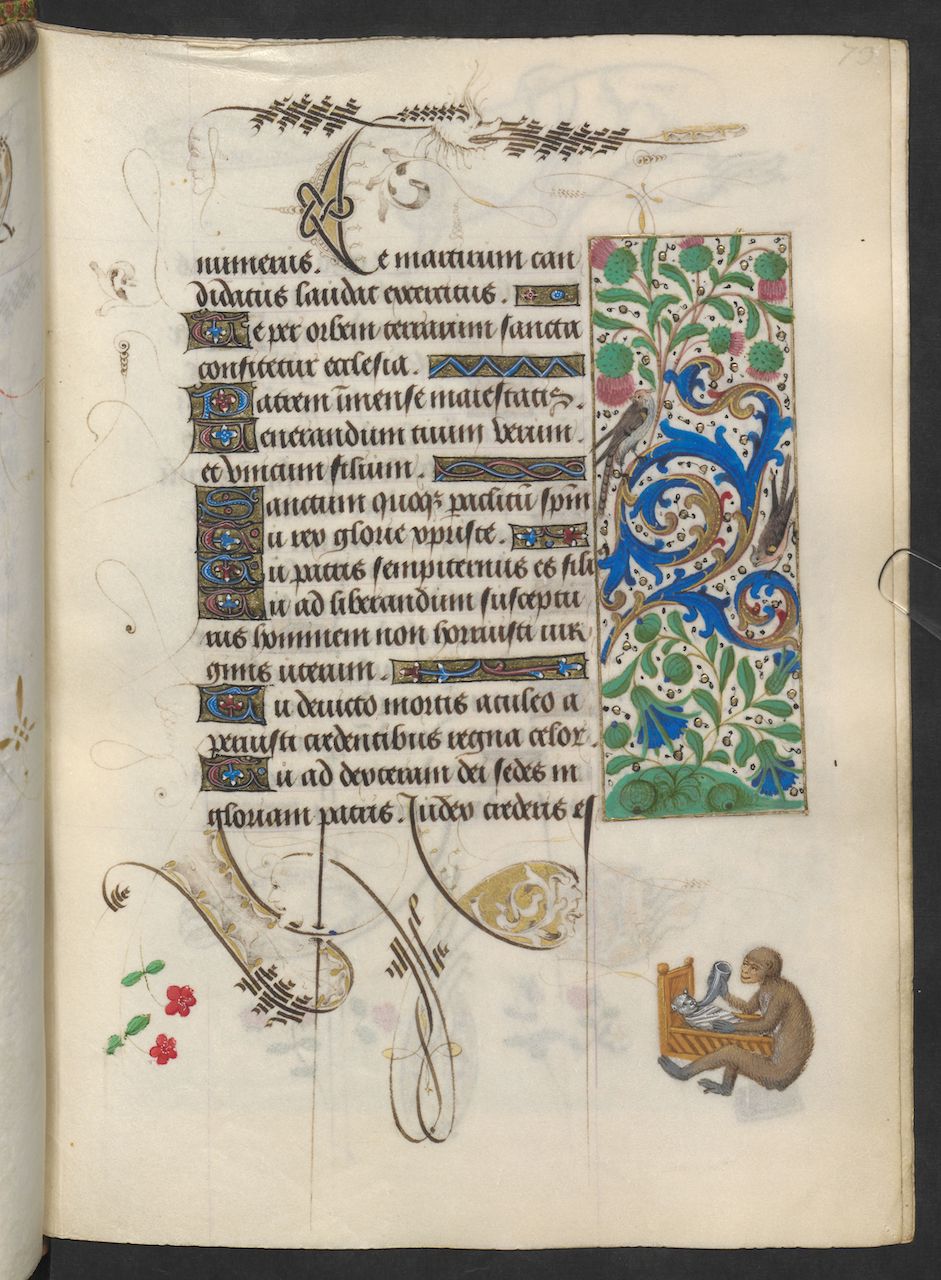 73
numerus. Te martirum can
didatus laudat exercitus.
Te per orbem terrarum sancta
confitetur ecclesia.
Patrem īmense maiestatis.
Venerandum tuum verum.
et vnicum filium.
Sanctum quoqꝫ paclitū spm̄
Tu rex glorie xpriste.
Tu patris sempiternus es fili
Tu ad liberandum susceptu
rus hominem non horruisti uir
ginis uterum.
Tu deuicto mortis aculeo a
peruisti credentibus regna celor.
Tu ad dexteram dei sedes in
gloriam patris. Iudex crederis es